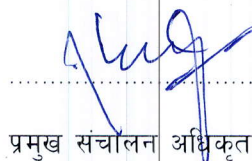 प्रमुख संचालन अधिकृत